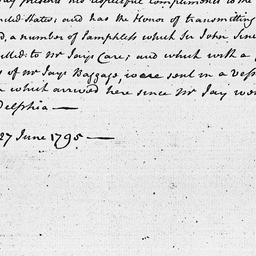 presents his respectful compliments to the
States; and has the Honor of transmitting
a number of Pamphlets which Sir John Sinc
to Mr Jays Care; and which with a
of Mr Jays Baggage, were sent in a Vess
which arrived here since Mr Jay wen
delphia —
27 June 1795 —